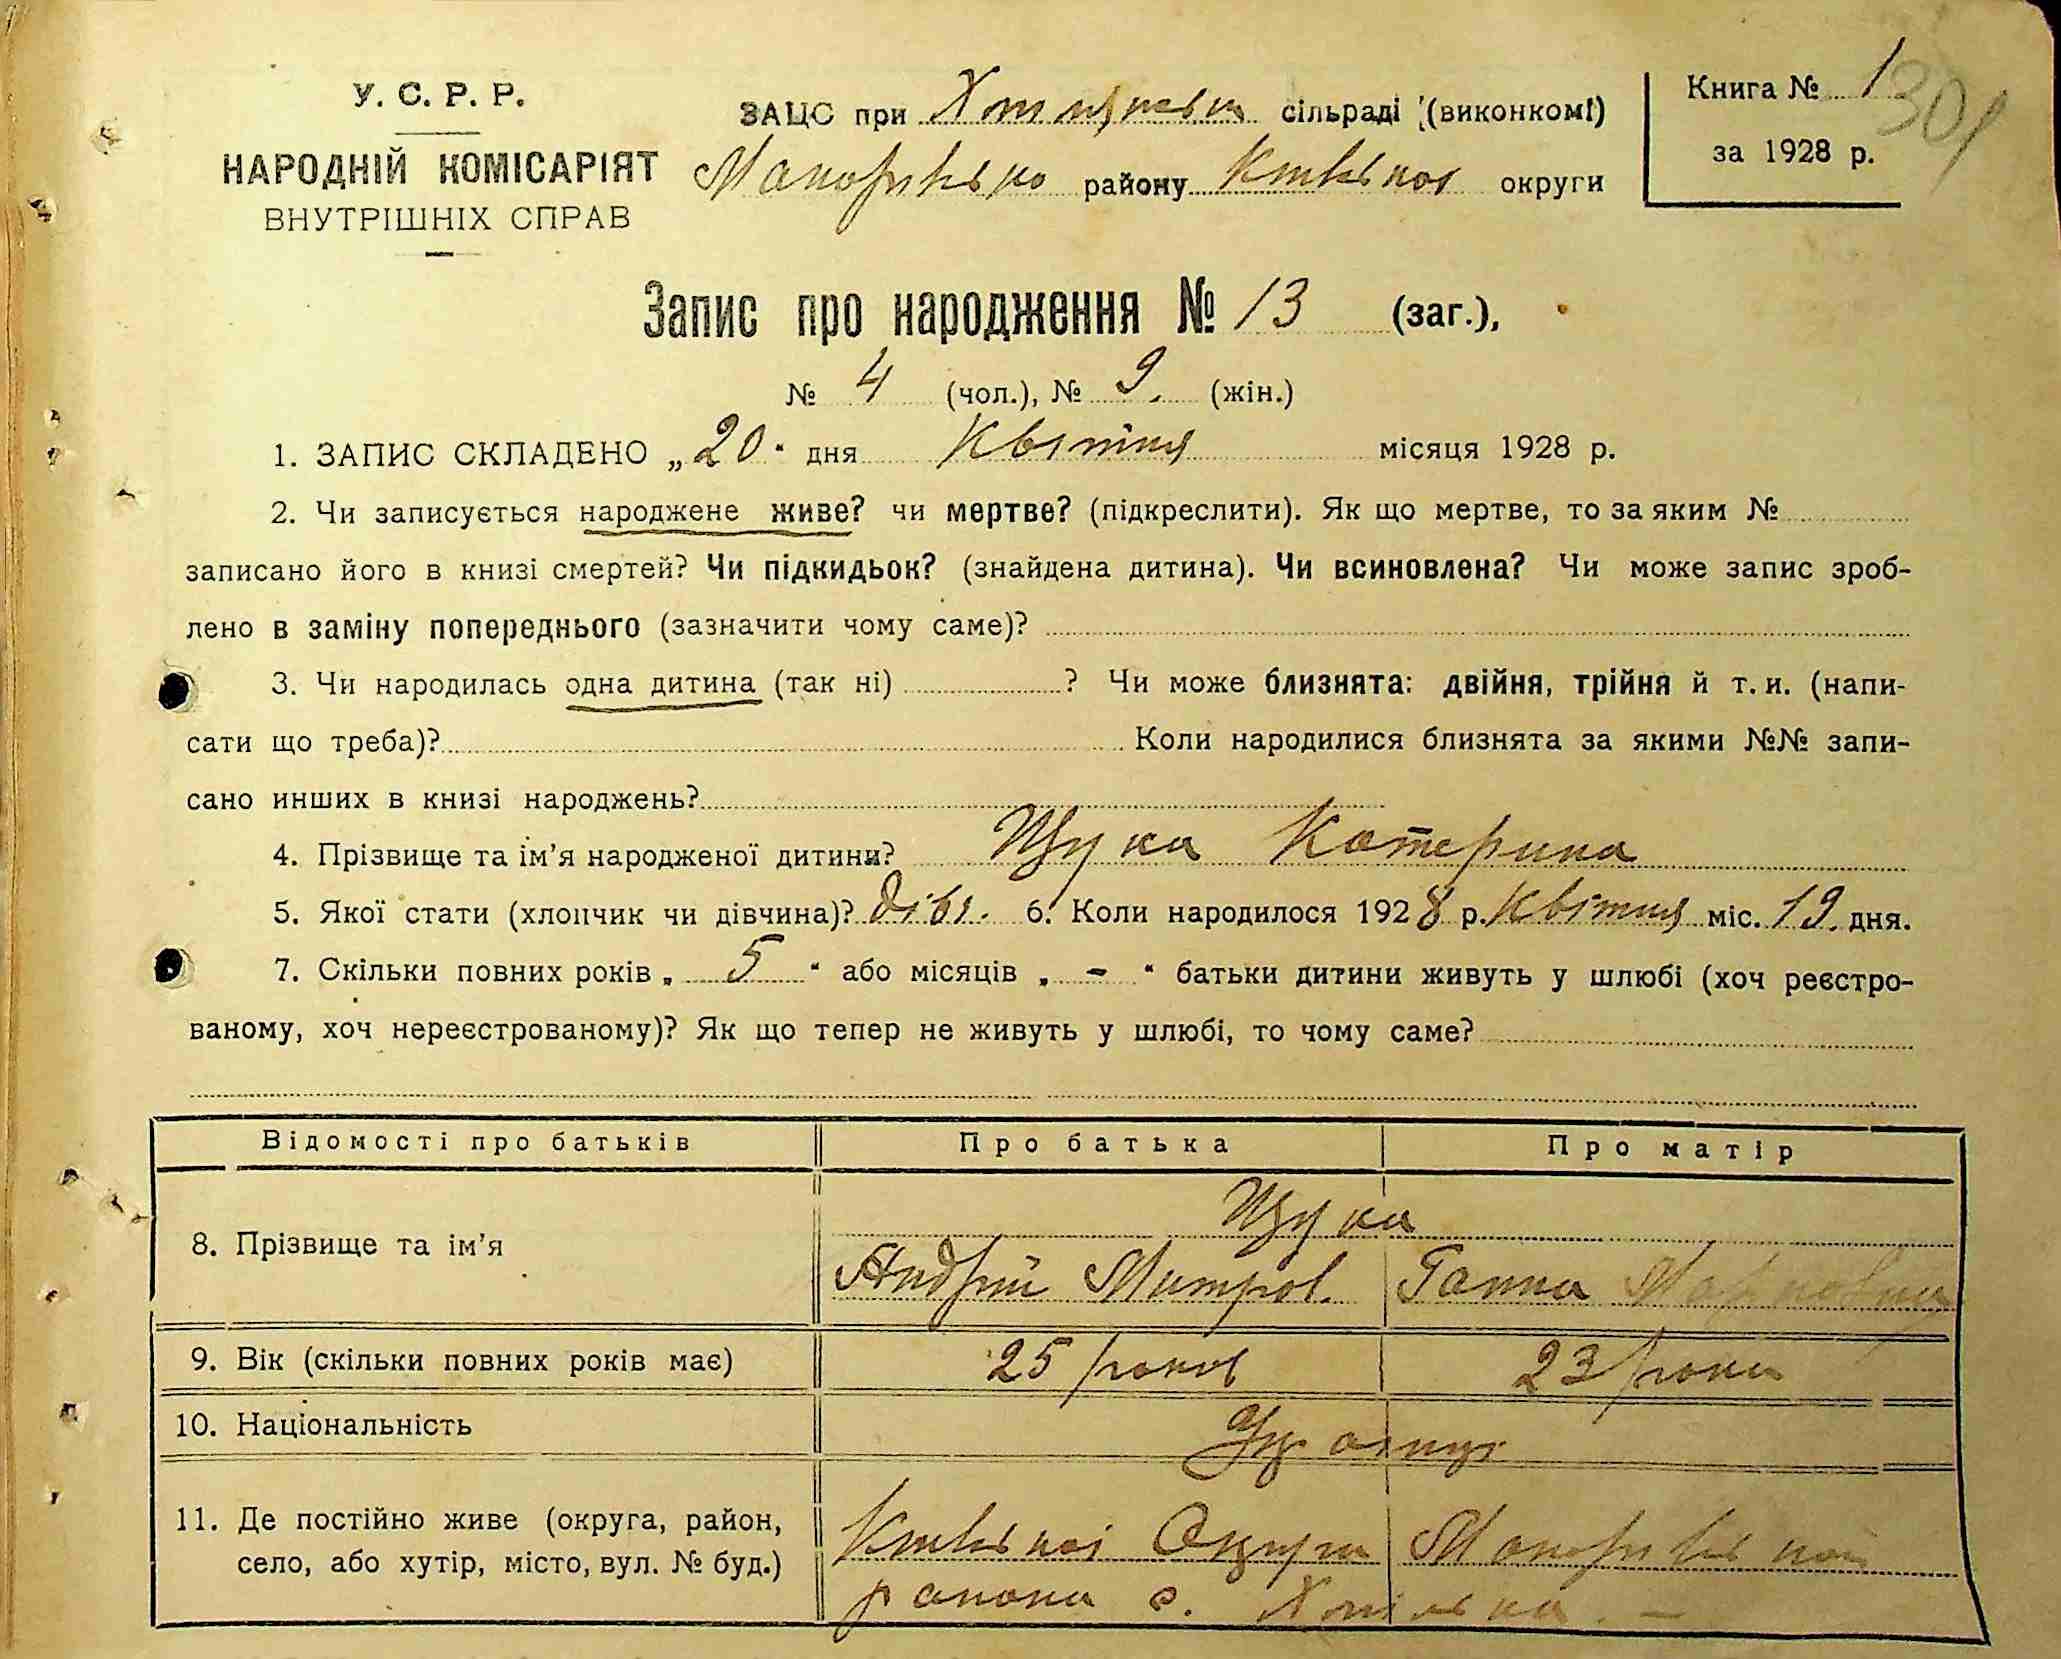 У. С. Р. Р.
НАРОДНІЙ КОМІСАРІЯТ
ВНУТРІШНІХ СПРАВ
ЗАЦС при сільраді (виконкомі)
району округи
Книга № 1
301
за 1928 р.
Запис про народження № 13 (заг.),
№ 4 (чол.), № 9. (жін.)
1. ЗАПИС СКЛАДЕНО „20“ дня Квітня місяця 1928 р.
2. Чи записується народжене живе? чи мертве? (підкреслити). Як що мертве, то за яким №
записано його в книзі смертей? Чи підкидьок? (знайдена дитина). Чи всиновлена? Чи може запис зроб-
лено в заміну попереднього (зазначити чому саме)?
3. Чи народилась одна дитина (так ні) ? Чи може близнята: двійня, трійня й т. и. (напи-
сати що треба)? Коли народилися близнята за якими №№ запи-
сано инших в книзі народжень?
4. Прізвище та ім’я народженої дитини? Щука Катерина
5. Якої стати (хлопчик чи дівчина)? дівч. 6. Коли народилося 1928 р. Квітня міс. 19. дня.
7. Скільки повних років „ 5 “ або місяців „ - “ батьки дитини живуть у шлюбі (хоч реєстро-
ваному, хоч нереєстрованому)? Як що тепер не живуть у шлюбі, то чому саме?
Відомості про батьків Про батька Про матір
8. Прізвище та ім’я Щука
Андрій Митров. Ганна
9. Вік (скільки повних років має) 25 років 23 роки
10. Національність Українці
11. Де постійно живе (округа, район,
село, або хутір, місто, вул. № буд.)
Округи
района с.